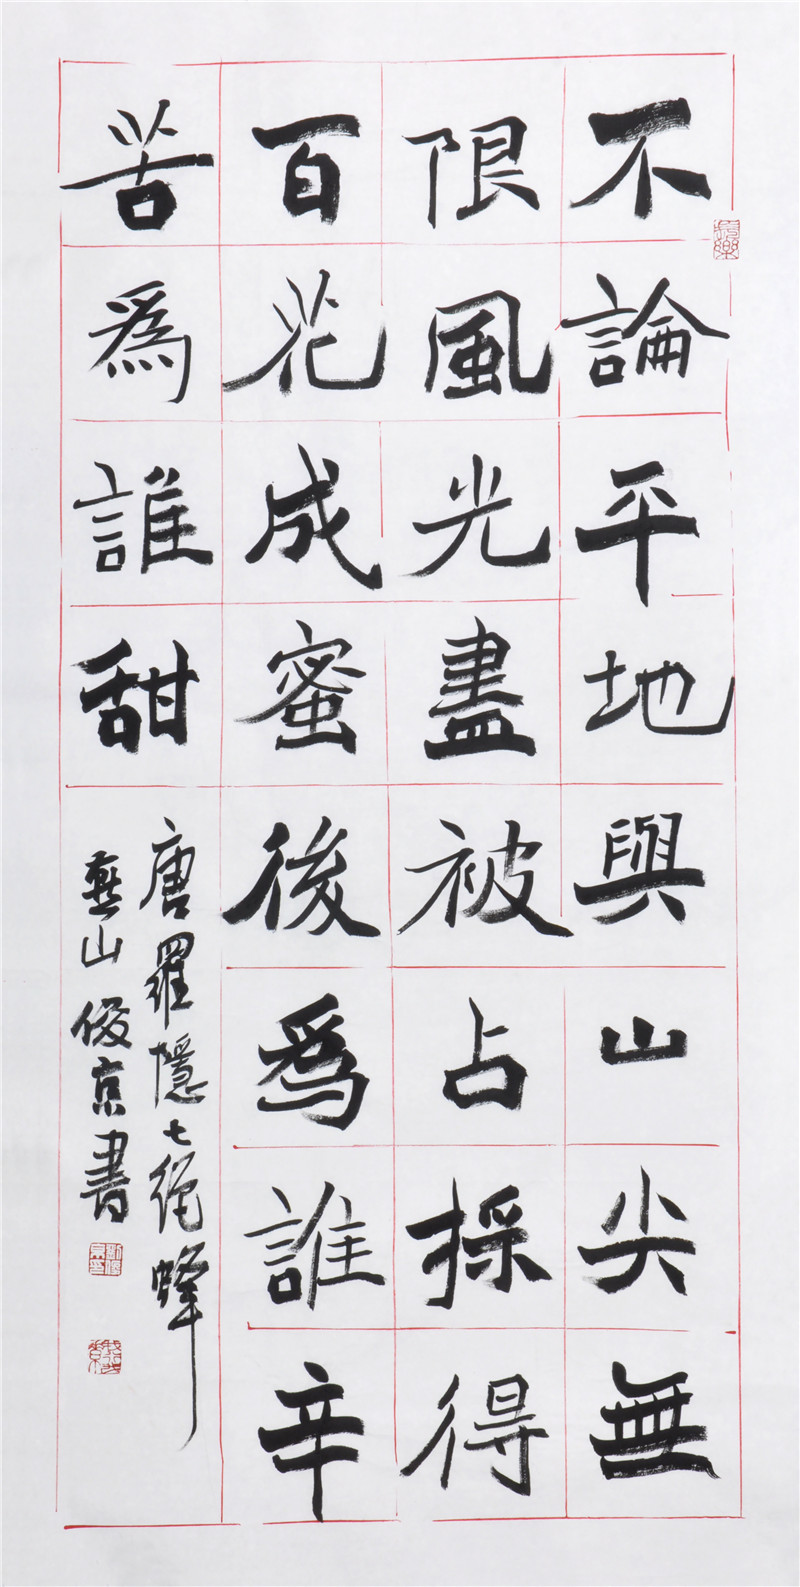 不論平地與山尖無
限風光盡被占採得
百花成蜜後爲誰辛
苦爲誰甜
唐羅隱七絕蜂
燕山俊京書